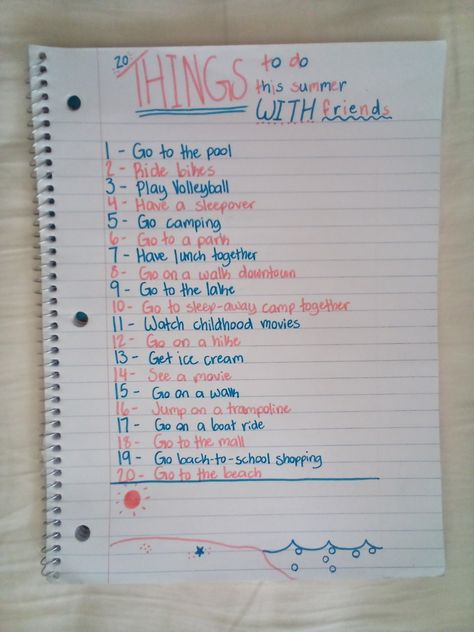 20 THINGS to do
this summer
WITH friends
1 - Go to the pool
2 - Ride bikes
3 - Play Volleyball
4 - Have a sleepover
5 - Go camping
6 - Go to a park
7 - Have lunch together
8 - Go on a walk downtown
9 - Go to the lake
10 - Go to sleep-away camp together
11 - Watch childhood movies
12 - Go on a hike
13 - Get ice cream
14 - See a movie
15 - Go on a walk
16 - Jump on a trampoline
17 - Go on a boat ride
18 - Go to the mall
19 - Go back-to-school shopping
20 - Go to the beach